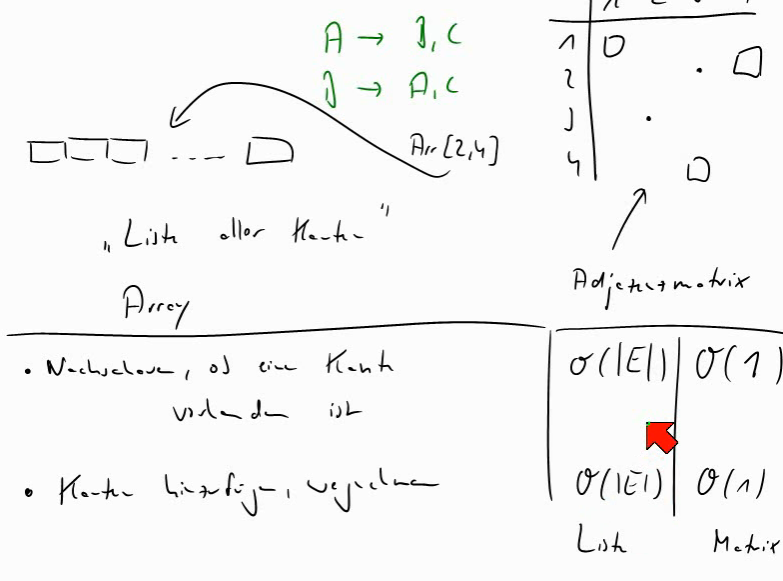 A → B, C
B → A, C
1
2
3
4
Arr[2,4]
"Liste aller Kanten"
Array
Adjazenzmatrix
• Nachschauen, ob eine Kante
vorhanden ist
O(|E|) O(1)
• Kanten hinzufügen, wegnehmen
O(|E|) O(1)
Liste Matrix